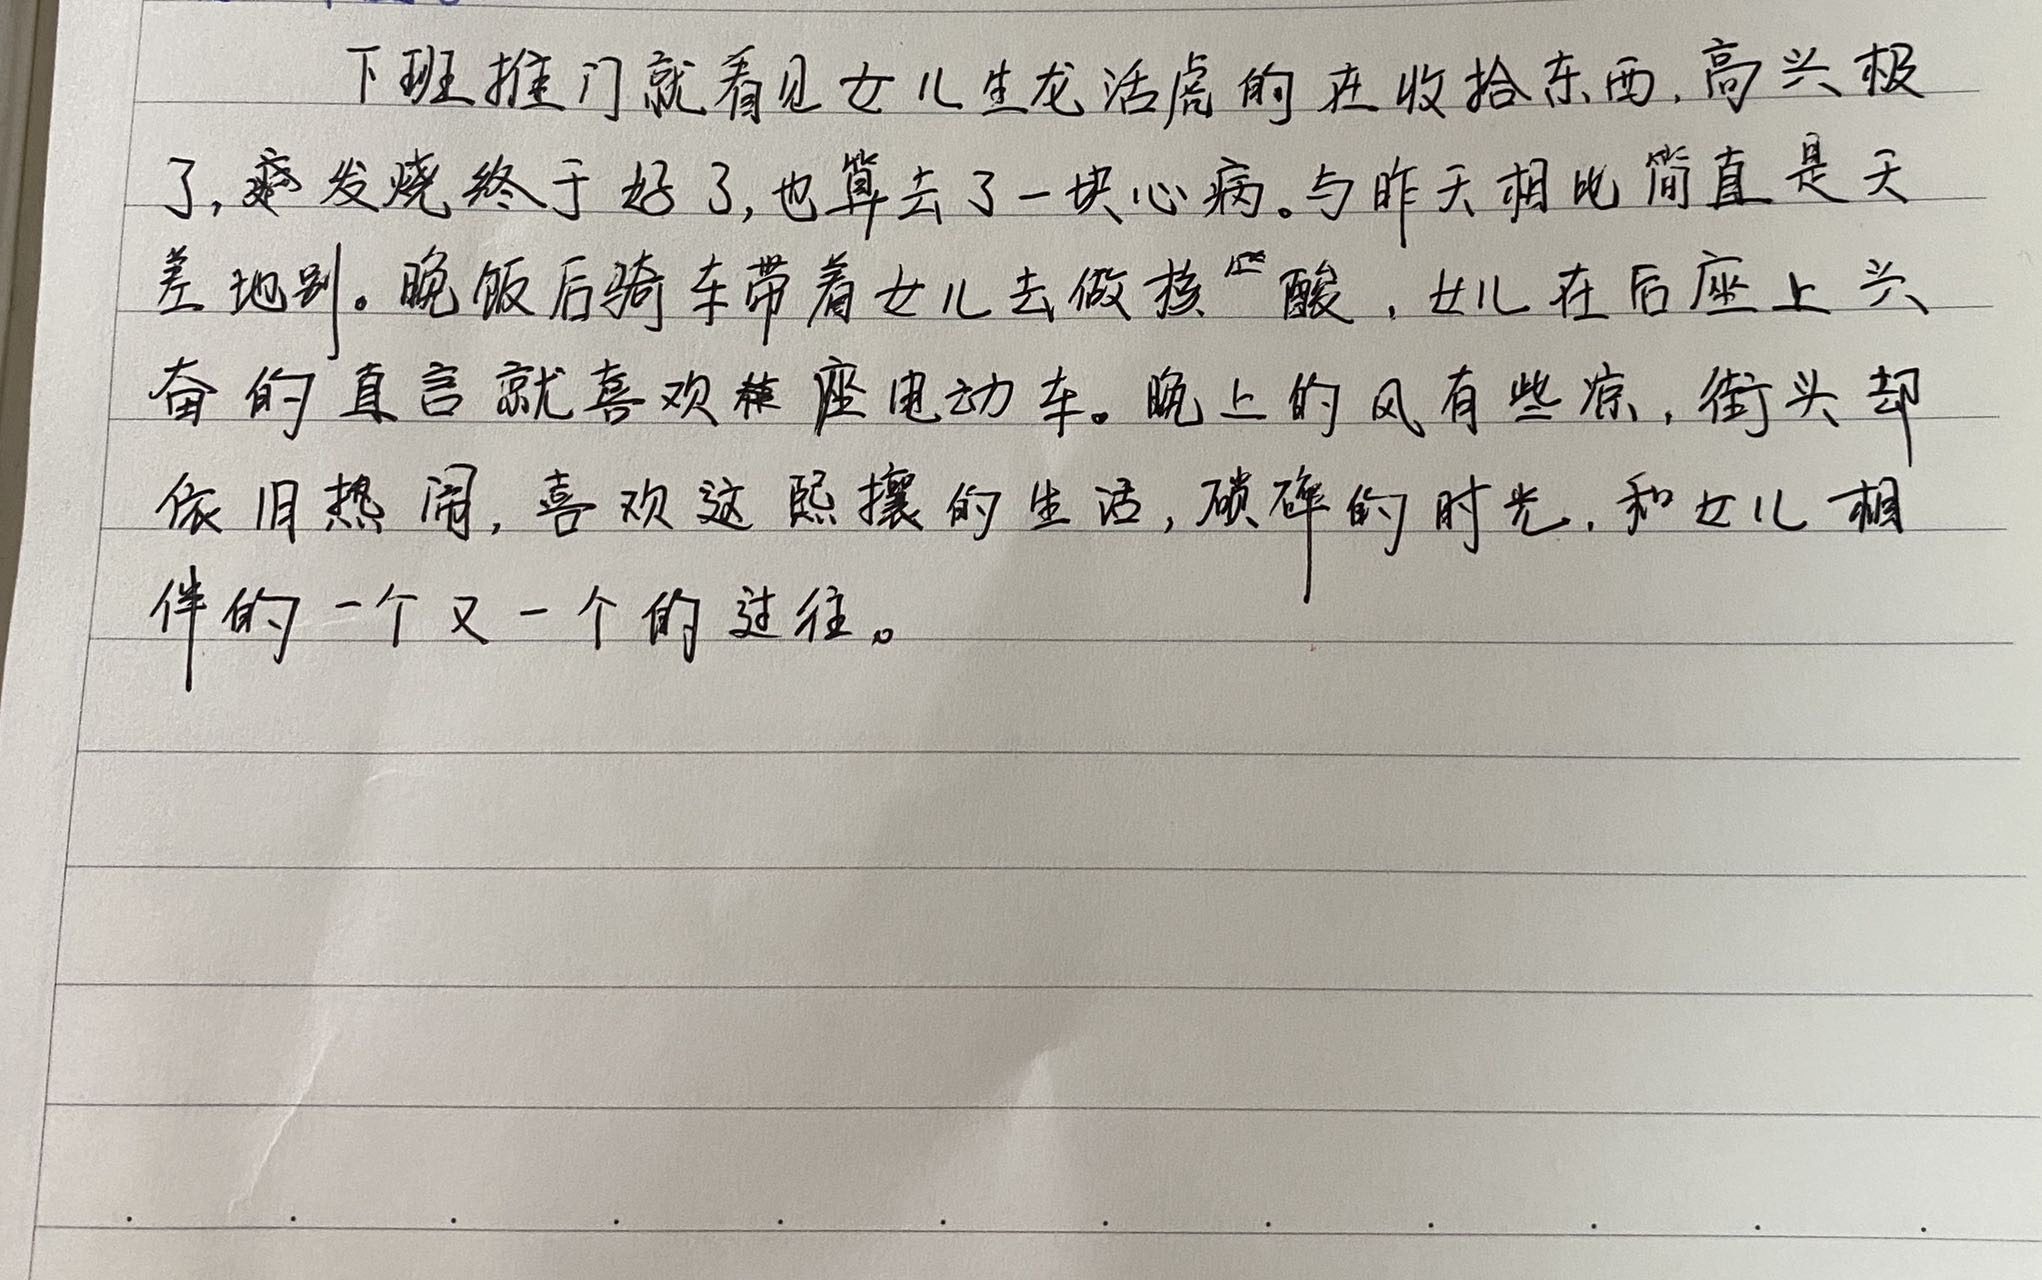 下班推门就看见女儿生龙活虎的在收拾东西,高兴极
了,发烧终于好了,也算去了一块心病。与昨天相比简直是天
差地别。晚饭后骑车带着女儿去做核酸,女儿在后座上兴
奋的直言就喜欢座电动车。晚上的风有些凉,街头却
依旧热闹,喜欢这熙攘的生活,琐碎的时光,和女儿相
伴的一个又一个的过往。